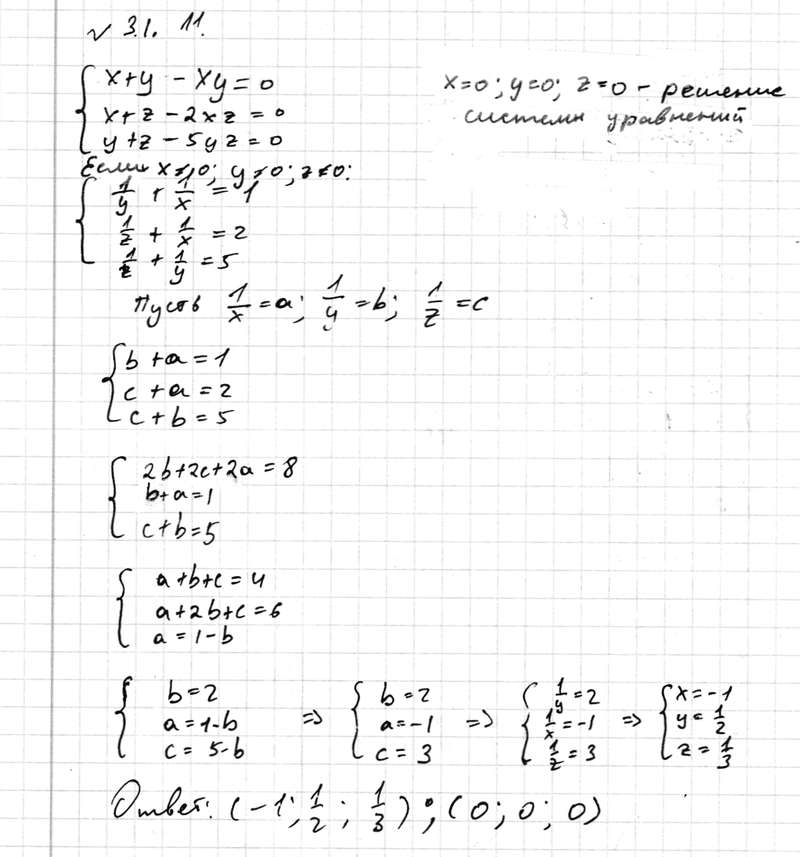 √ 3.1. 11.
x+y - xy = 0
x+z - 2xz = 0
y+z - 5yz = 0
x=0; y=0; z=0 - решение
системы уравнений
Если x≠0; y≠0; z≠0:
1/y + 1/x = 1
1/z + 1/x = 2
1/z + 1/y = 5
Пусть 1/x = a; 1/y = b; 1/z = c
b + a = 1
c + a = 2
c + b = 5
2b+2c+2a = 8
b+a=1
c+b=5
a+b+c = 4
a+2b+c=6
a = 1-b
b=2 a=1-b c= 5-b => b=2 a=-1 c=3 => 1/y=2 1/x=-1 1/z=3 => x=-1 y=1/2 z=1/3
Ответ: (-1; 1/2; 1/3); (0; 0; 0)